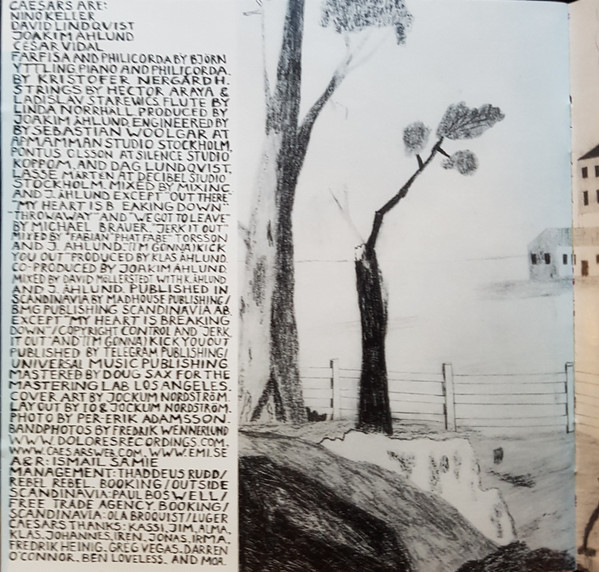 CAESARS ARE:
NINO KELLER
DAVID LINDQVIST
JOAKIM ÅHLUND
CÉSAR VIDAL
FARFISA AND PHILICORDA BY BJÖRN
YTTLING PIANO AND PHILICORDA.
BY KRISTOFER NERGÅRDH.
STRINGS BY HECTOR ARAYA &
LADISLAV STAREWICS FLUTE BY
LINDA NORRHÄLL PRODUCED BY
JOAKIM ÅHLUND ENGINEERED BY
BY SEBASTIAN WOOLGAR AT
APMAMMAN STUDIO STOCKHOLM.
PONTUS OLSSON AT SILENCE STUDIO
KOPPOM. AND DAG LUNDQVIST.
LASSE MÅRTÉN AT DECIBEL STUDIO
STOCKHOLM. MIXED BY MIXINC.
AND J. ÅHLUND EXCEPT "OUT THERE"
"MY HEART IS B EAKING DOWN"
"THROWAWAY" AND "WE GOT TO LEAVE"
BY MICHAEL BRAUER. "JERK IT OUT"
MIXED BY "FABIAN "PHAT FABE" TORSSON
AND J. ÅHLUND. "(I'M GONNA) KICK
YOU OUT" PRODUCED BY KLAS ÅHLUND.
CO-PRODUCED BY JOAKIM ÅHLUND.
MIXED BY DAVID MÖLLERSTEDT WITH K. ÅHLUND
AND J. ÅHLUND. PUBLISHED IN
SCANDINAVIA BY MADHOUSE PUBLISHING/
BMG PUBLISHING SCANDINAVIA AB.
EXCEPT "MY HEART IS BREAKING
DOWN"/COPYRIGHT CONTROL AND "JERK
IT OUT" AND "(I'M GONNA) KICK YOU OUT
PUBLISHED BY TELEGRAM PUBLISHING/
UNIVERSAL MUSIC PUBLISHING
MASTERED BY DOUG SAX FOR THE
MASTERING LAB LOS ANGELES.
COVER ART BY JOCKUM NORDSTRÖM.
LAY OUT BY IO & JOCKUM NORDSTRÖM.
PHOTO BY PER-ERIK ADAMSSON.
BANDPHOTOS BY FREDRIK WENNERLUND
WWW.DOLORESRECORDINGS.COM.
WWW.CAESARSWEB.COM. WWW.EMI.SE
A&R: ISMAIL SAMIE
MANAGEMENT: THADDEUS RUDD/
REBEL REBEL. BOOKING/OUTSIDE
SCANDINAVIA: PAUL BOSWELL/
FREE TRADE AGENCY. BOOKING/
SCANDINAVIA: OLA BROQUIST/LUGER
CAESARS THANKS: KASSI, JIM, ALMA,
KLAS, JOHANNES, IREN, JONAS, IRMA,
FREDRIK HEINIG, GREG VEGAS, DARREN
O'CONNOR, BEN LOVELESS, AND MOA.